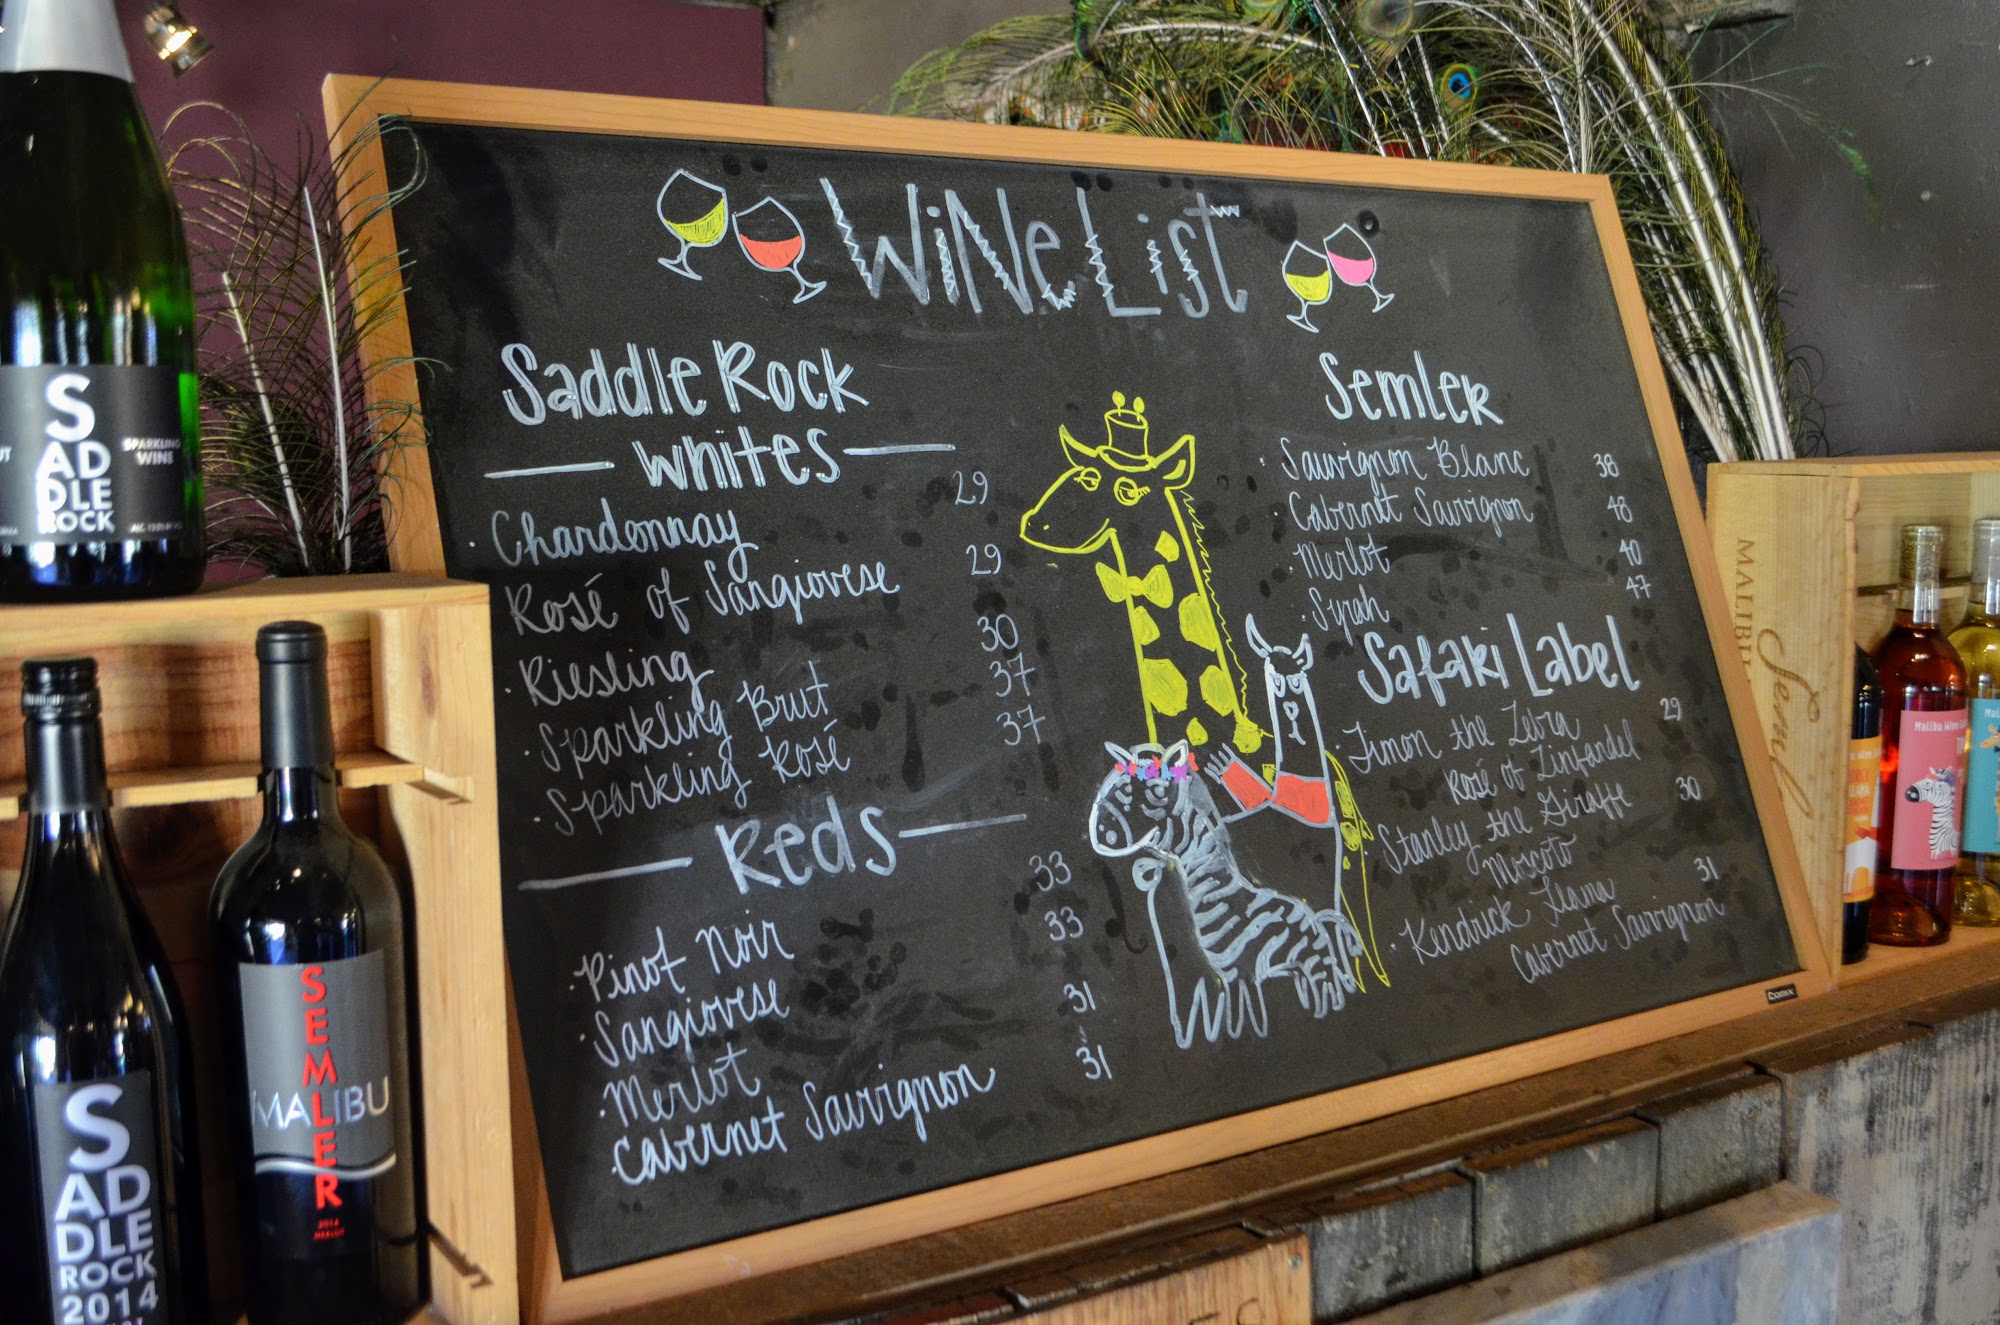 Wine List
Saddle Rock
Whites
· Chardonnay 29
Rosé of Sangiovese 29
· Riesling 30
· Sparkling Brut 37
· Sparkling Rosé 37
Reds
· Pinot Noir 33
· Sangiovese 33
· Merlot 31
· Cabernet Sauvignon 31
Semler
· Sauvignon Blanc 38
· Cabernet Sauvignon 48
· Merlot 40
· Syrah 47
Safari Label
· Timon the Zebra 29
Rosé of Zinfandel
· Stanley the Giraffe 30
Moscoto
· Kendrick Llama 31
Cabernet Sauvignon
Comix
S
AD
DLE
ROCK
SPARKLING
WINE
S
AD
DLE
ROCK
2014
SEMLER
MALIBU
2014
MERLOT
MALIBU
Malibu Wine